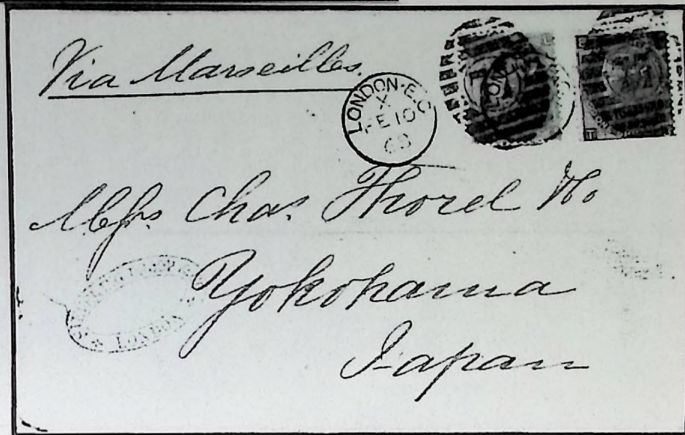 Via Marseilles.
LONDON·E.C
X
FE 10
68
Messrs. Chas. Thorel & Co
Yokohama
Japan
LONDON